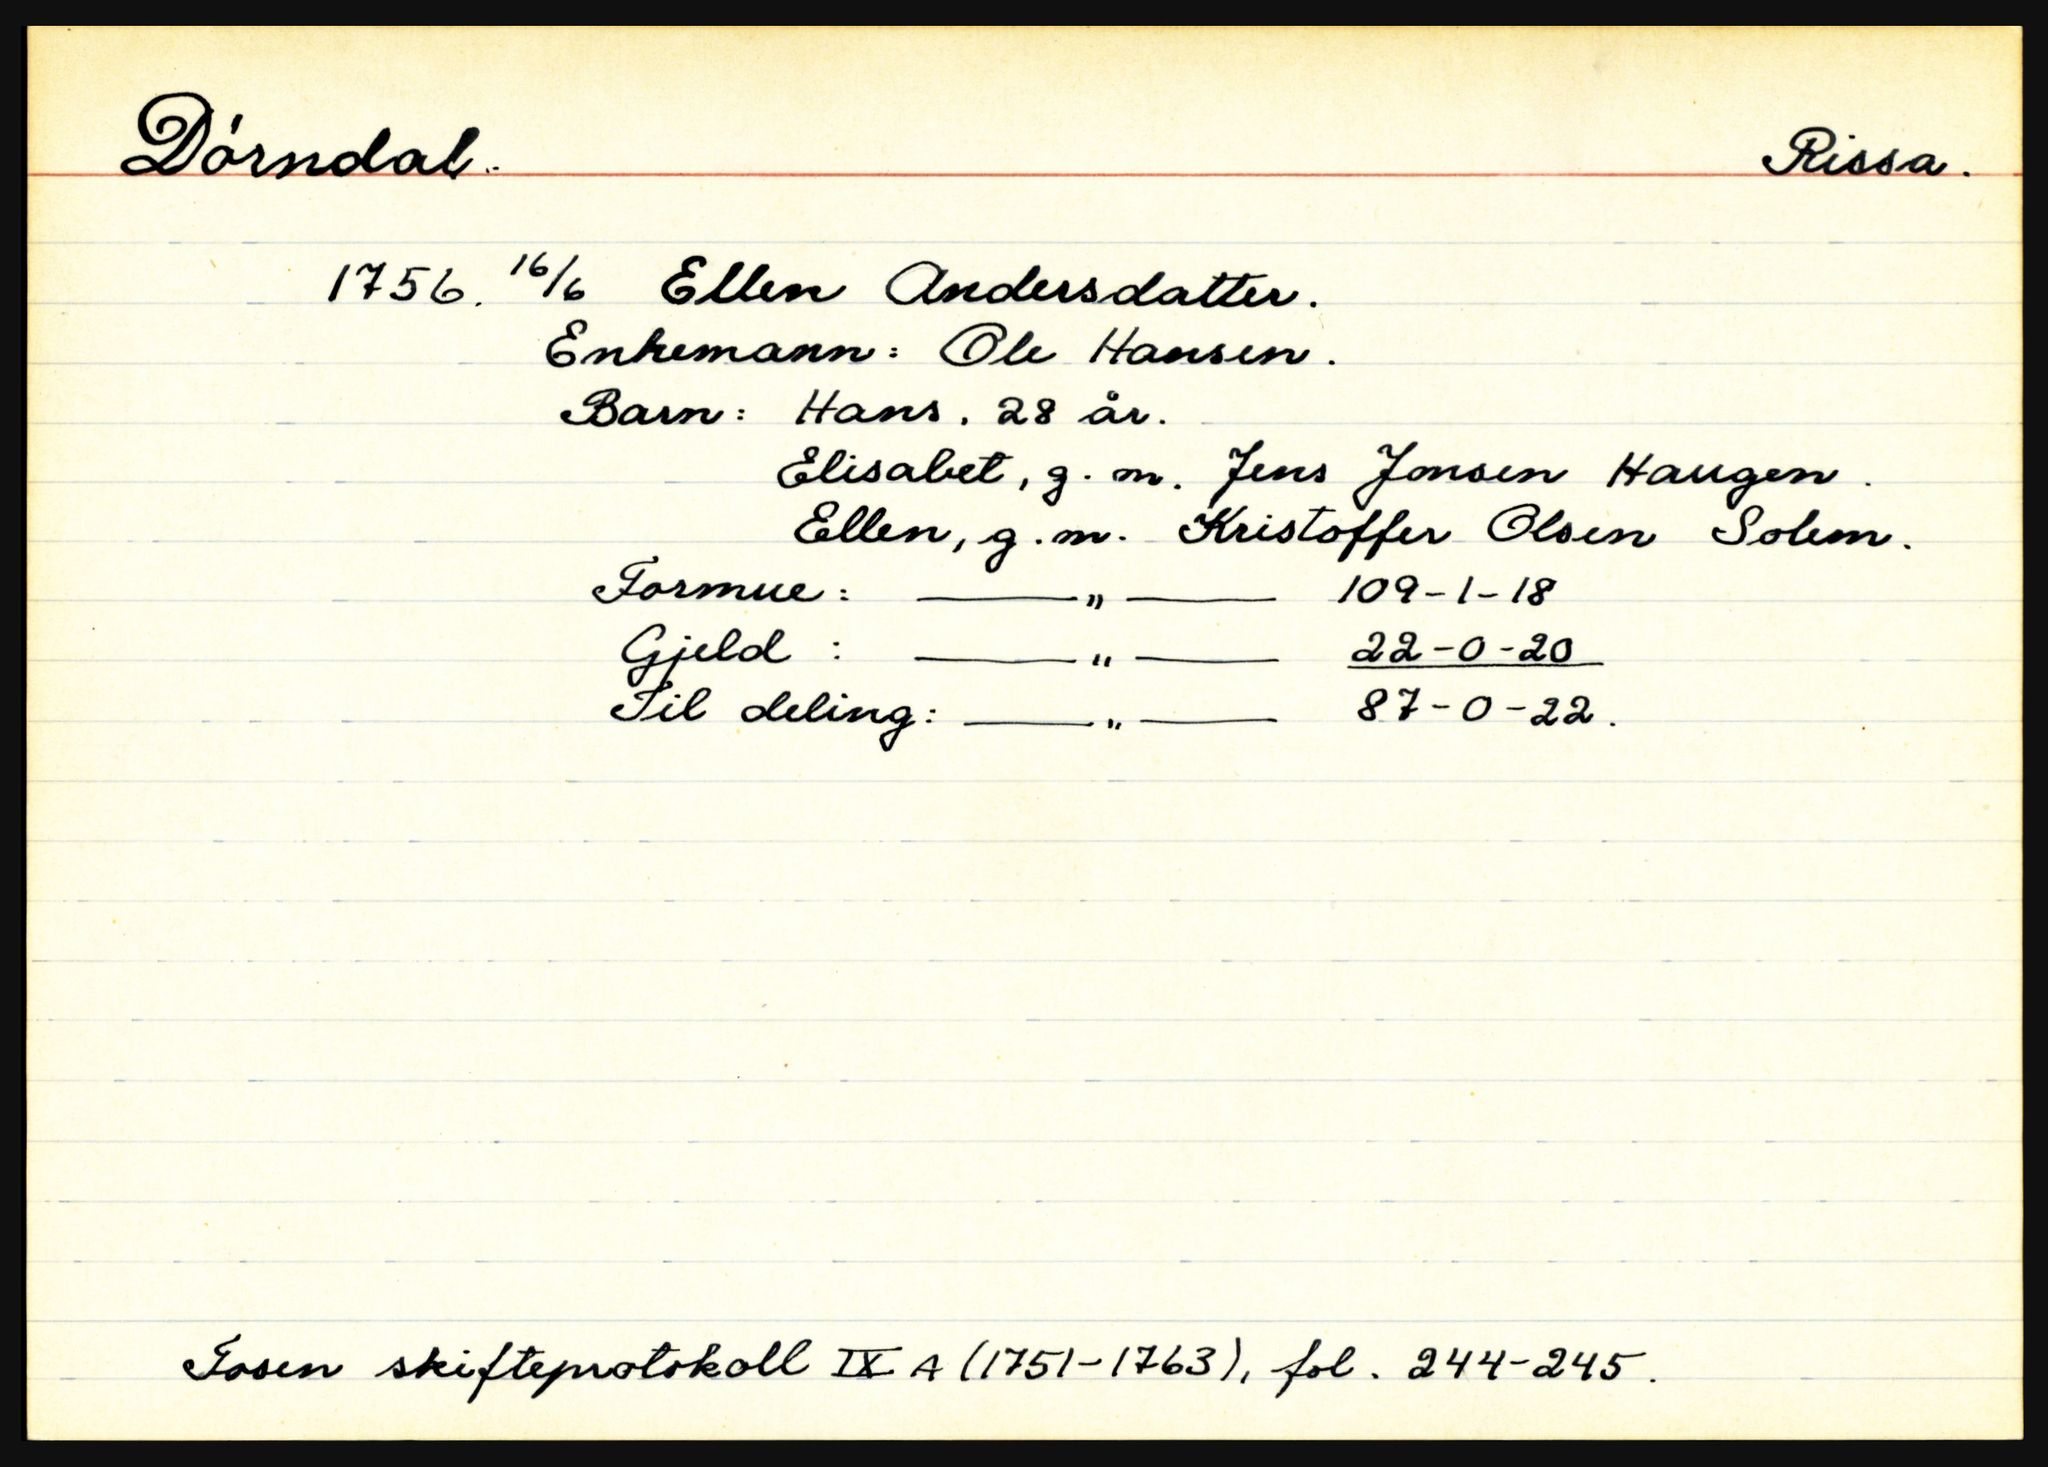 Dørndal. Rissa.
1756. 16/6 Ellen Andersdatter.
Enkemann: Ole Hansen.
Barn: Hans. 28 år.
Elisabet, g. m. Jens Jonsen Haugen.
Ellen, g. m. Kristoffer Olsen Solem.
Formue: —— „ —— 109-1-18
Gjeld : —— „ —— 22-0-20
Til deling: —— „ —— 87-0-22.
Fosen skifteprotokoll IX A (1751-1763), fol. 244-245.